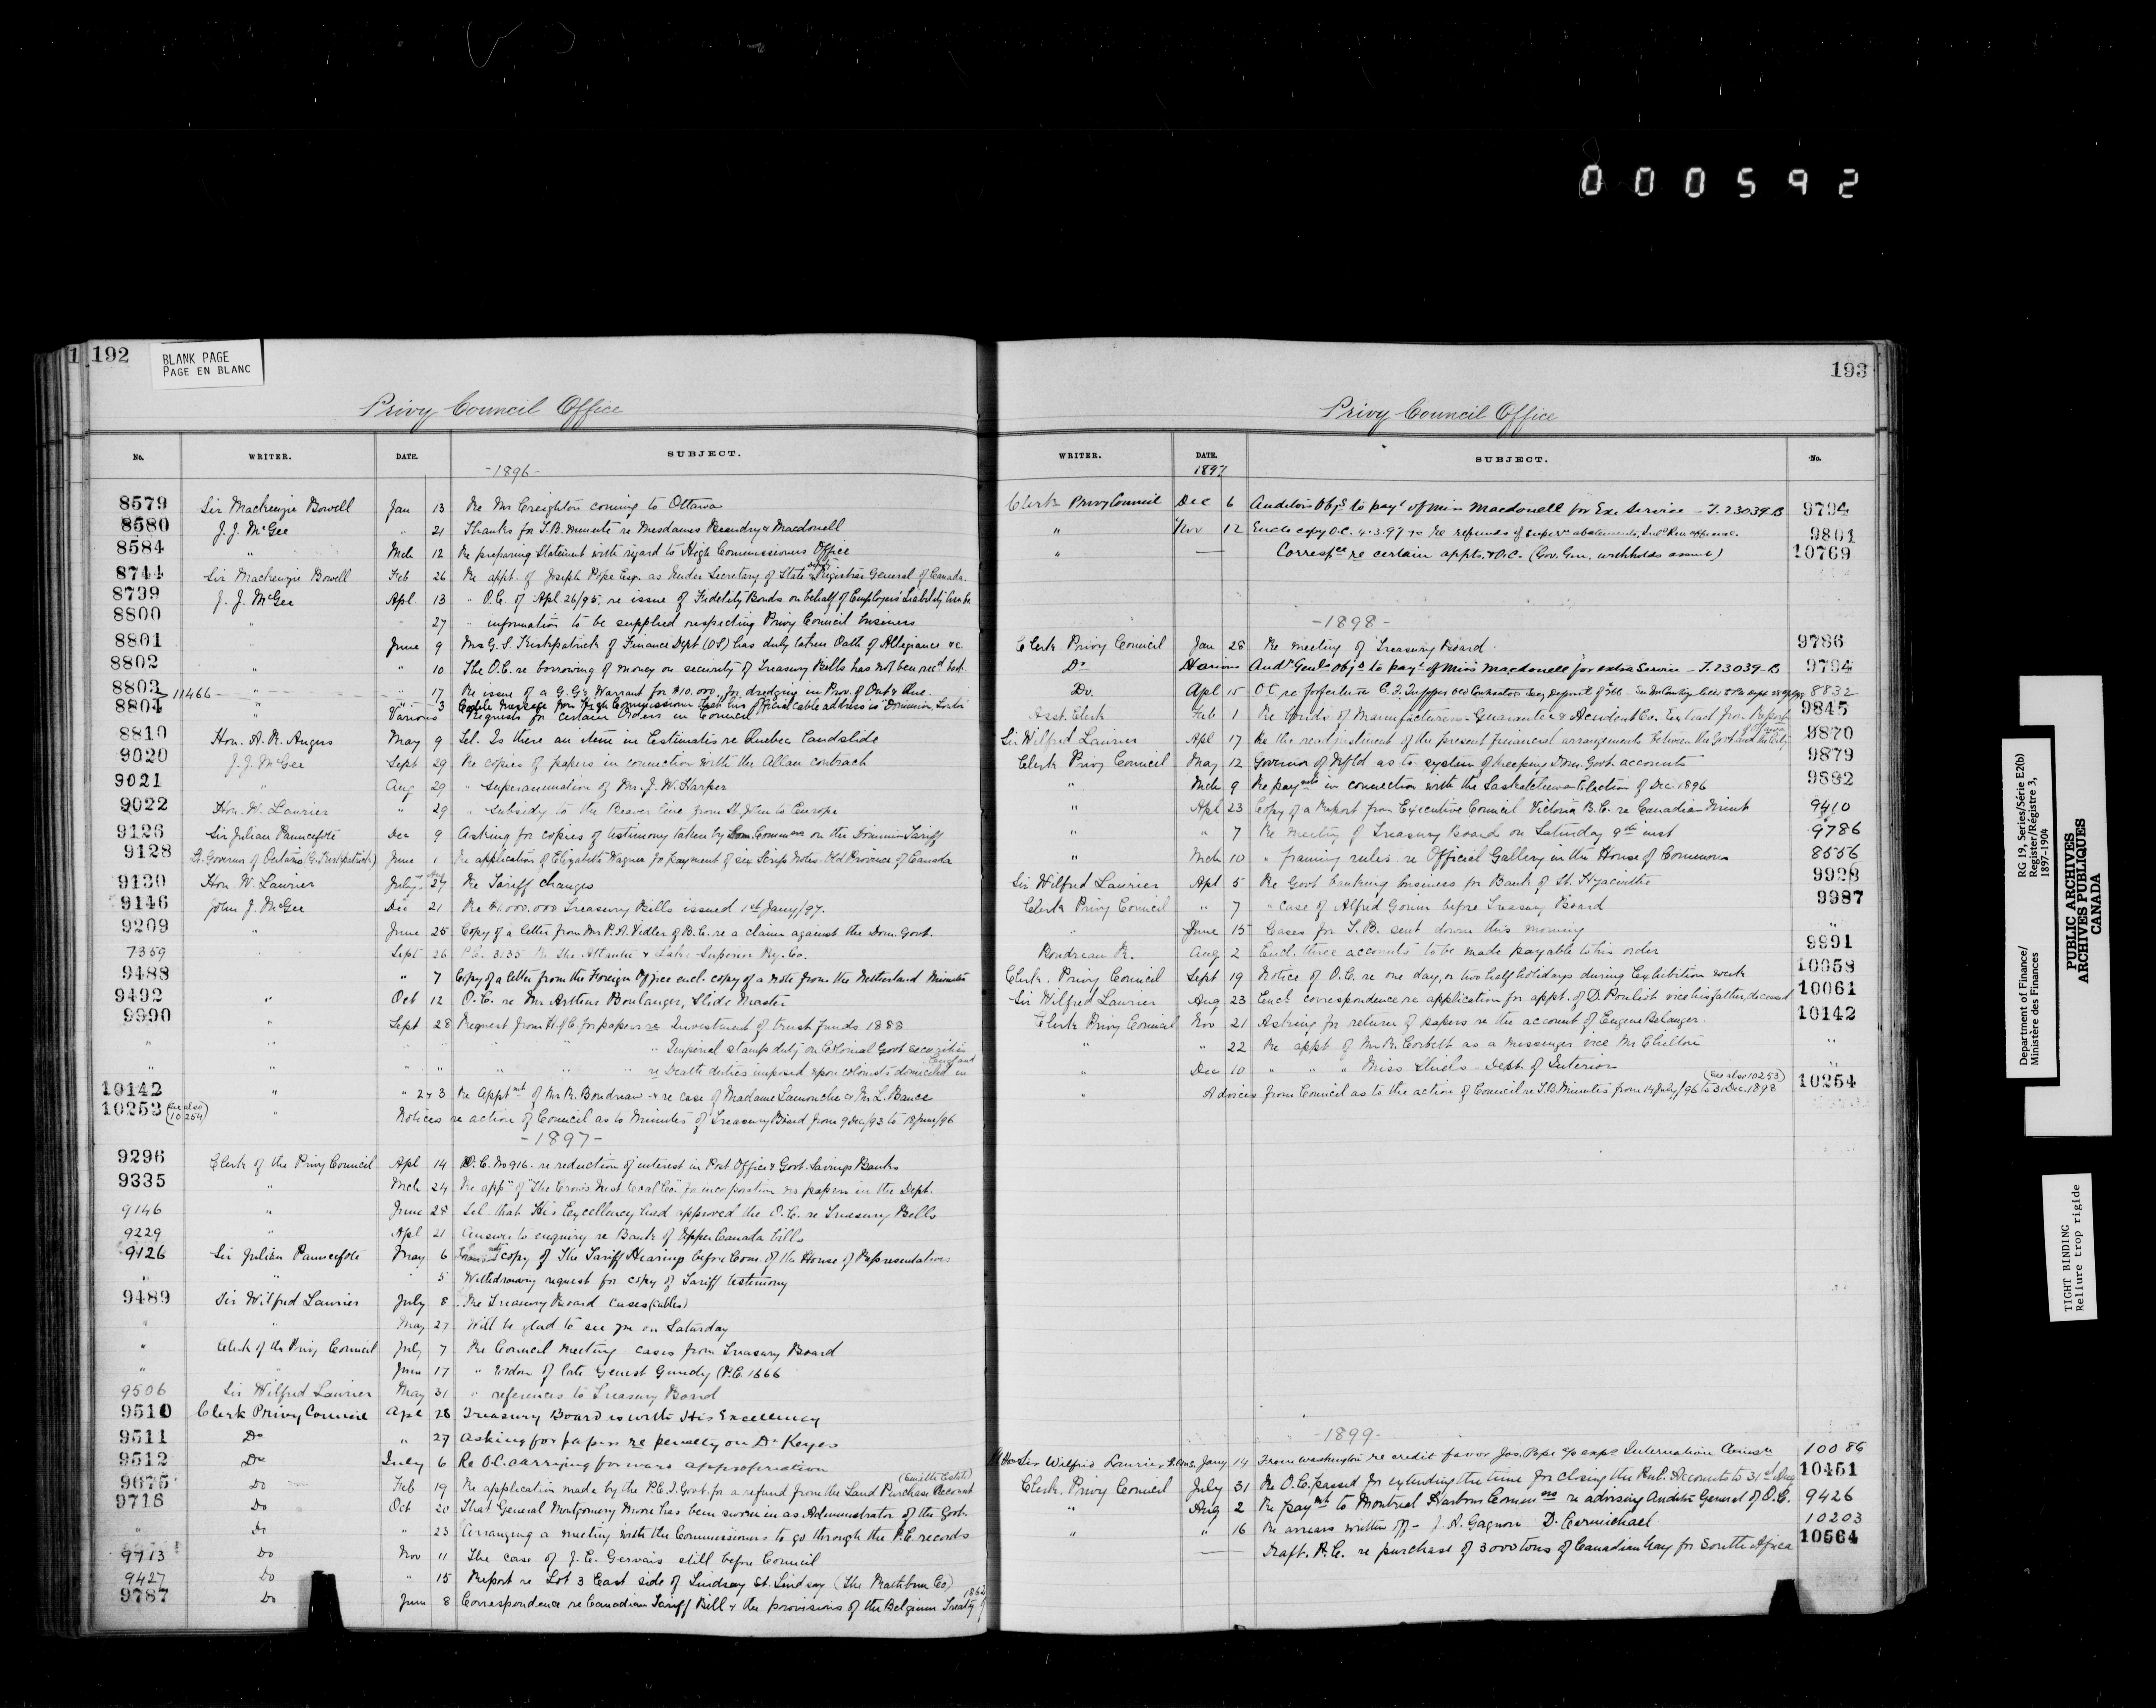 000592
192
BLANK PAGE
PAGE EN BLANC
Privy Council Office
No. WRITER. DATE. SUBJECT.
-1896-
8579 Sir Mackenzie Bowell Jan 13 Re Mr Creighton coming to Ottawa
8580 J. J. McGee " 21 Thanks for T.B. minute re Mesdames Beaudry & Macdonell
8584 " Mch 12 Re preparing Statement with regard to High Commissioners Office
8744 Sir Mackenzie Bowell Feb 26 Re appt. of Joseph Pope Esq. as Under Secretary of State & Deputy Registrar General of Canada.
8739 J. J. McGee Apl 13 " O.C. of Apl 26/95, re issue of Fidelity Bonds on behalf of Employers' Liability
8800 " " 27 " information to be supplied respecting Privy Council business
8801 " June 9 Mr G. S. Kirkpatrick of Finance Dept (OS) has duly taken Oath of Allegiance &c.
8802 " " 10 The O.C. re borrowing of money on security of Treasury Bills has not been recd
8803 " " 17 Re issue of a G.G's Warrant for $10.000. for dredging in Prov. of Ont & Que.
11466 " " 3 Cable Message from High Commissioner that his official cable address is "Dominion, London"
8804 " Various Requests for certain Orders in Council
8810 Hon. A. R. Angers May 9 Tel. Is there an item in Estimates re Quebec Landslide
9020 J. J. McGee Sept 29 Re copies of papers in connection with the Allan contract
9021 " Aug 29 " superannuation of Mr. J. W. Harper
9022 Hon. W. Laurier " 29 " subsidy to the Beaver line from St. John to Europe
9126 Sir Julian Pauncefote Dec 9 Asking for copies of testimony taken by Commn on the Dominion Tariff
9128 Lt. Governor of Ontario (G. Kirkpatrick) June 1 Re application of Elizabeth Wagner for payment of six Scrip Notes Old Province of Canada
9130 Hon W. Laurier July & Aug 27 Re Tariff changes
9146 John J. McGee Dec 21 Re $1.000.000 Treasury Bills issued 1st Jany/97.
9209 " June 25 Copy of a letter from Mr P. A. Vedler of B.C. re a claim against the Dom. Govt.
7359 " Sept 26 P.C. 3135 Re the Atlantic & Lake Superior Ry. Co.
9488 " 7 Copy of a letter from the Foreign Office encl. copy of a note from the Netherland Minister
9492 " Oct 12 O.C. re Mr Arthur Boulanger, Slide Master
9990 " Sept 28 Request from H. of C. for papers re Investment of trust funds 1888
" " " Imperial stamp duty on Colonial Govt securities
" " " " " " re Death duties imposed upon colonists domiciled in England
10142 " " 2 & 3 Re Apptmt of Mr R. Boudreau & re case of Madame Lamouche & Mr L. Bance
10253 (see also 10254) " Notices re action of Council as to Minutes of Treasury Board from 9 Dec/93 to 18 June/96
-1897-
9296 Clerk of the Privy Council Apl 14 P.C. No 916. re reduction of interest in Post Office & Govt. Savings Banks
9335 " Mch 24 Re appn of "The Crow's Nest Coal Co." for incorporation no papers in the Dept.
9146 " June 28 Tel. that His Excellency had approved the O.C. re Treasury Bills
9229 " Apl 21 Answer to enquiry re Bank of Upper Canada bills
9126 Sir Julian Pauncefote May 6 Transmits copy of The Tariff Hearings before Com. of the House of Representatives
" " " 5 Withdrawing request for copy of Tariff testimony
9489 Sir Wilfred Laurier July 8 Re Treasury Board cases (cables)
" " May 27 Will be glad to see you on Saturday
" Clerk of the Privy Council July 7 Re Council Meeting cases from Treasury Board
" " June 17 " widow of late Genest Gundy (P.C. 1666
9506 Sir Wilfred Laurier May 31 " references to Treasury Board
9510 Clerk Privy Council Apl 28 Treasury Board is with His Excellency
9511 Do " 27 Asking for papers re penalty on Dr Keyes
9512 Do July 6 Re O.C. carrying forward appropriation
9675 Do Feb 19 Re application made by the P.E.I. Govt. for a refund from the Land Purchase Account
9718 Do Oct 20 That General Montgomery Moore has been sworn in as Administrator of the Govt.
" Do " 23 Arranging a meeting with the Commissioners to go through the P.C. records
9713 Do Nov 11 The case of J. E. Gervais still before Council
9427 Do " 15 Report re Lot 3 East side of Lindsay St. Lindsay (The Rathbun Co)
9787 Do June 8 Correspondence re Canadian Tariff Bill & the provisions of the Belgium Treaty of 1862
193
Privy Council Office
WRITER. DATE. SUBJECT. No.
1897
Clerk Privy Council Dec 6 Auditors Objn to payt of Miss Macdonell for Ex. Service - T. 23039 B 9794
" Nov 12 Encls copy O.C. 4.3.97 re refunds of supern abatements, 9801
" — Correspce re certain appts. & O.C. (Gov. Gen. withholds assent) 10769
-1898-
Clerk Privy Council Jan 28 Re meeting of Treasury Board. 9786
Do Various Audr Genls Objn to payt of Miss Macdonell for extra Service - T. 23039 B 9794
Do. Apl 15 O.C. re forfeiture 8832
Asst. Clerk Feb 1 Re bonds of Manufacturers Guarantee & Accident Co. Extract from Report 9845
Sir Wilfred Laurier Apl 17 Re the readjustment of the present financial arrangements between the Govt and the City 9870
Clerk Privy Council May 12 Governor of Nfld as to system of keeping Dom. Govt. accounts 9879
" Mch 9 Re paymts in connection with the Saskatchewan Election of Dec. 1896 9882
" Apl 23 Copy of a Report from Executive Council Victoria B.C. re Canadian Mint 9410
" " 7 Re Meeting of Treasury Board on Saturday 9th inst 9786
" Mch 10 " framing rules re Official Gallery in the House of Commons 8556
Sir Wilfred Laurier Apl 5 Re Govt banking business for Bank of St. Hyacinthe 9928
Clerk Privy Council " 7 " case of Alfred Gowan before Treasury Board 9987
" June 15 Cases for T.B. sent down this morning "
Boudreau R. Aug 2 Encl. three accounts to be made payable to his order 9991
Clerk. Privy Council Sept 19 Notice of O.C. re one day, or two half holidays during Exhibition week 10058
Sir Wilfred Laurier Aug 23 Encls correspondence re application for appt. of D. Pouliot vice his father, deceased 10061
Clerk Privy Council Nov 21 Asking for return of papers re the account of Eugene Belanger. 10142
" " 22 Re appt of Mr R. Corbett as a messenger vice Mr Chilton "
" Dec 10 " " " Miss Shields - Dept. of Interior "
" Advices from Council as to the action of Council re T.B. Minutes from 14 July/96 to 31 Dec. 1898 (see also 10253) 10254
-1899-
Sir Wilfrid Laurier Jany 14 From Washington re credit favor Jos. Pope 10086
Clerk. Privy Council July 31 Re O.C. passed for extending the time for closing the Pub. Accounts to 31st Aug 10451
" Aug 2 Re paymt to Montreal Harbour Commrs re advising Auditor General of O.C. 9426
" " 16 Re arrears written off - J. A. Gagnon D. Carmichael 10203
— Draft. P.C. re purchase of 3000 tons of Canadian hay for South Africa 10564
Department of Finance/
Ministère des Finances
RG 19, Series/Série E2(b)
Register/Régistre 3,
1897-1904
PUBLIC ARCHIVES
ARCHIVES PUBLIQUES
CANADA
TIGHT BINDING
Reliure trop rigide